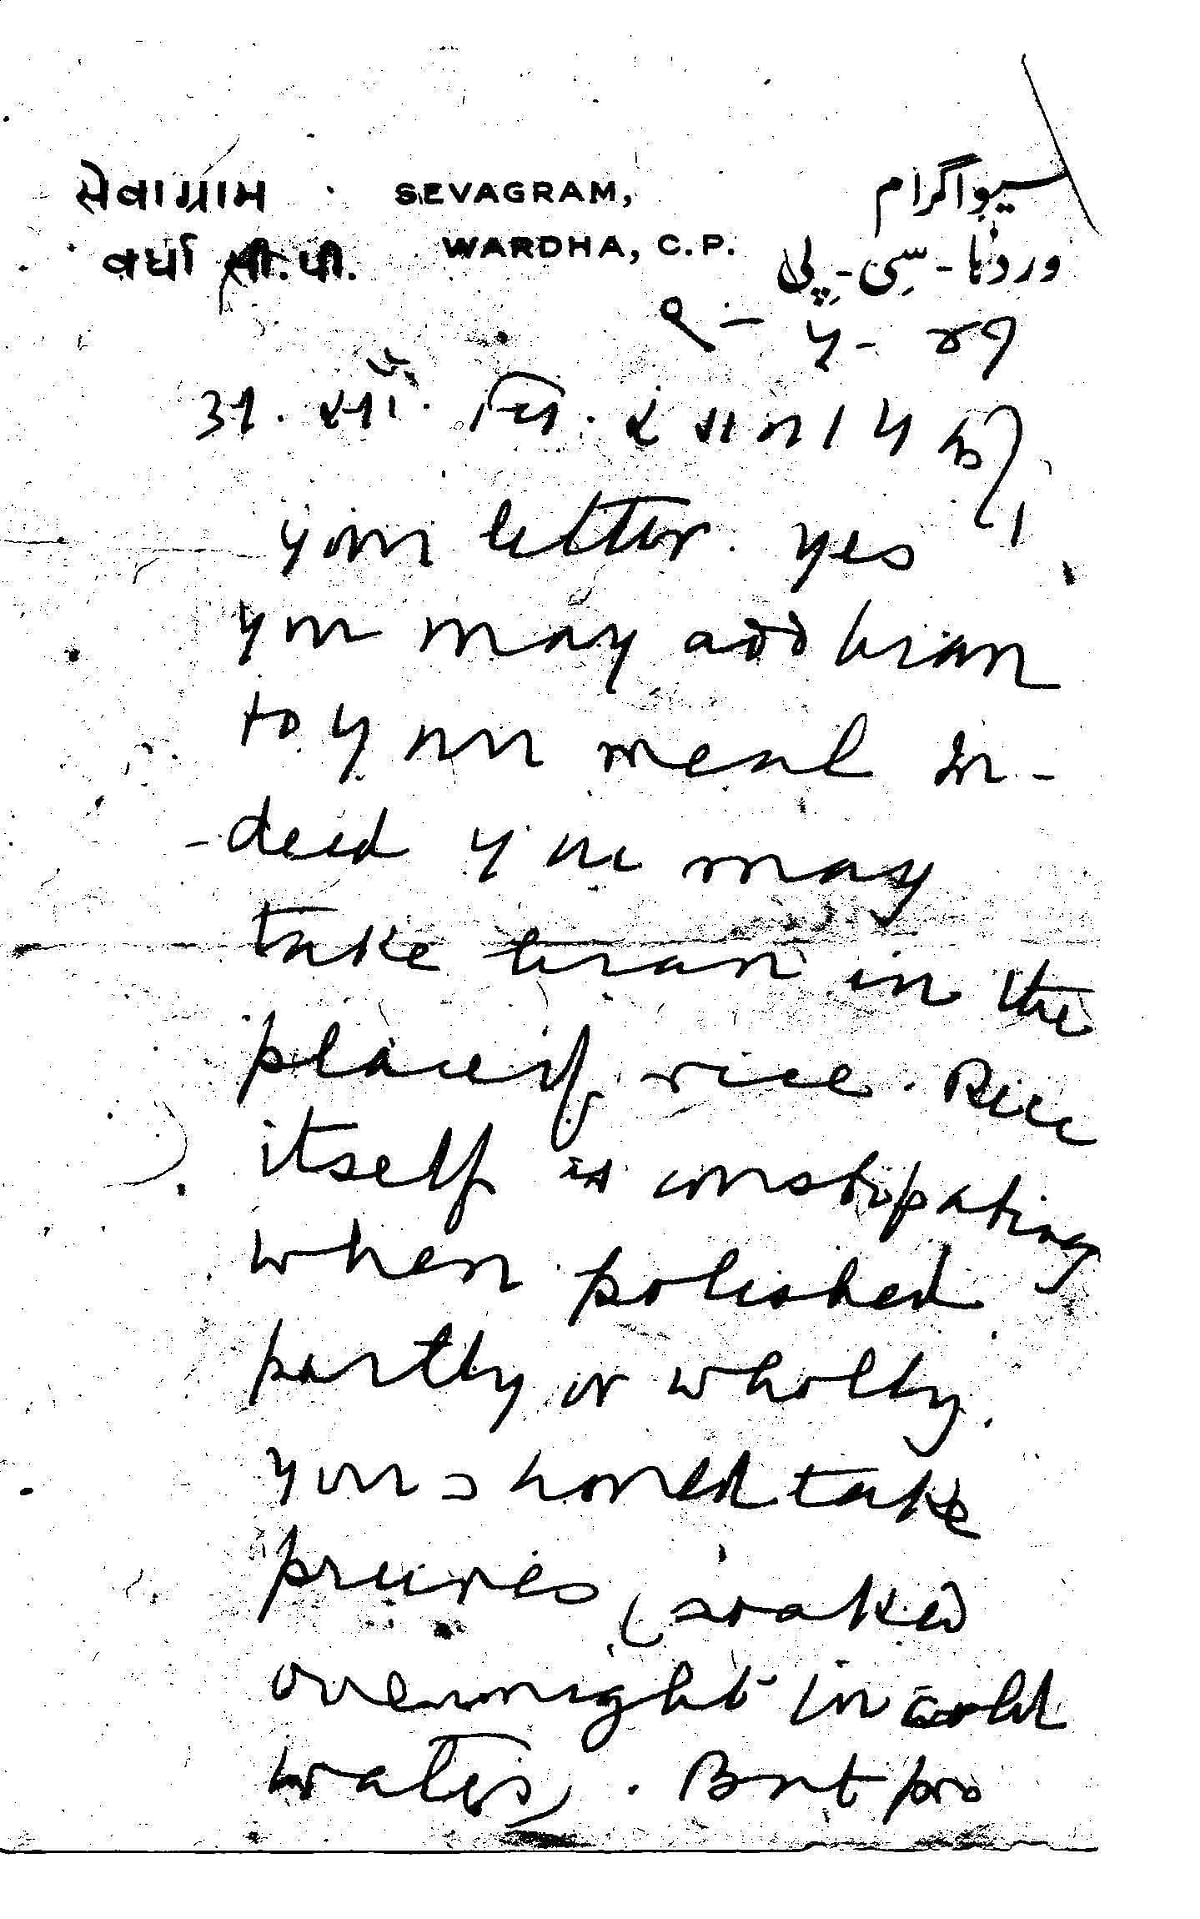 સેવાગ્રામ SEVAGRAM, سیواگرام
વર્ધા સી.પી. WARDHA, C.P. وردہا-سِی-پِی
९-५-४१
अ. सौ. चि.
Your letter. Yes
you may add bran
to your meal in-
-deed you may
take bran in the
place of rice. Rice
itself is constipating
when polished
partly or wholly.
You should take
prunes (soaked
overnight in cold
water). But pro